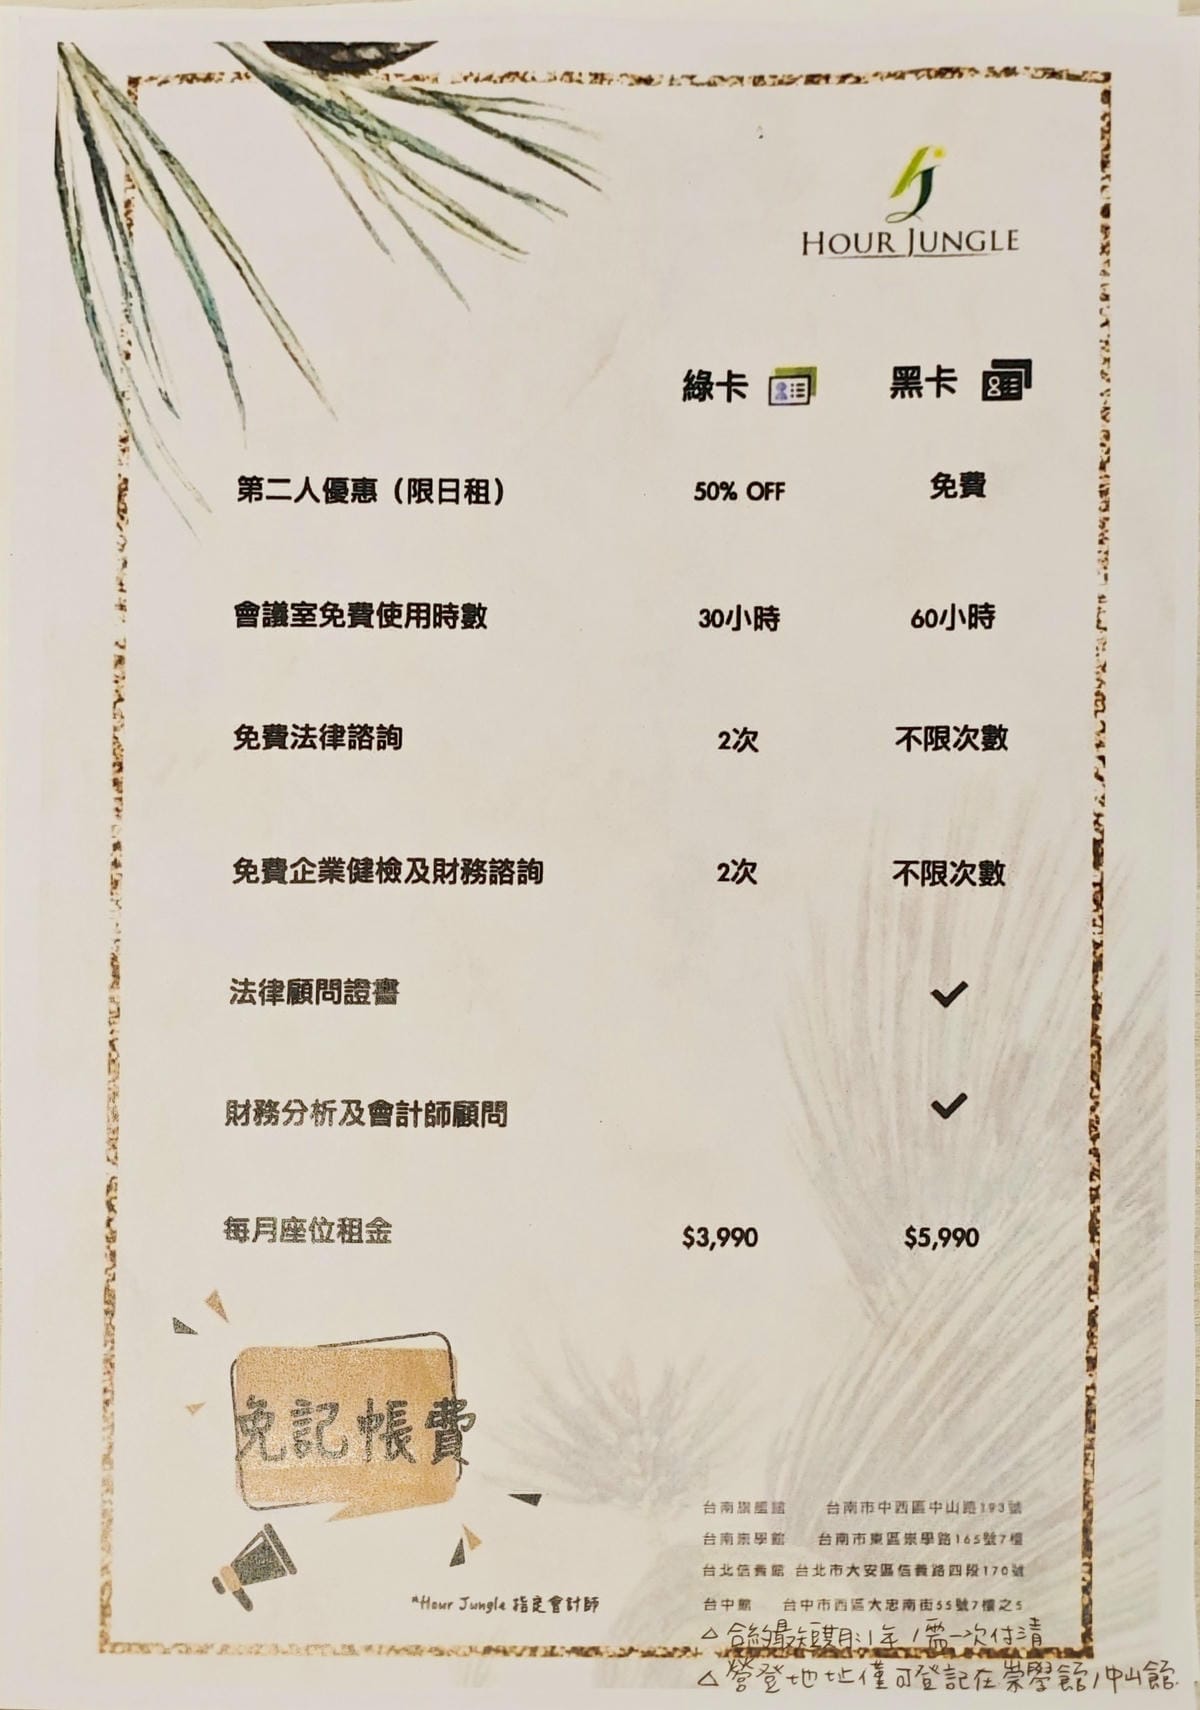 HOUR JUNGLE
綠卡 黑卡
第二人優惠（限日租） 50% OFF 免費
會議室免費使用時數 30小時 60小時
免費法律諮詢 2次 不限次數
免費企業健檢及財務諮詢 2次 不限次數
法律顧問證書
財務分析及會計師顧問
每月座位租金 $3,990 $5,990
免記帳費
*Hour Jungle 指定會計師
台南旗艦館 台南市中西區中山路193號
台南崇學館 台南市東區崇學路165號7樓
台北信義館 台北市大安區信義路四段170號
台中館 台中市西區大忠南街55號7樓之5
△ 合約最短期:1年/需一次付清
△ 營登地址僅可登記在崇學館/中山館